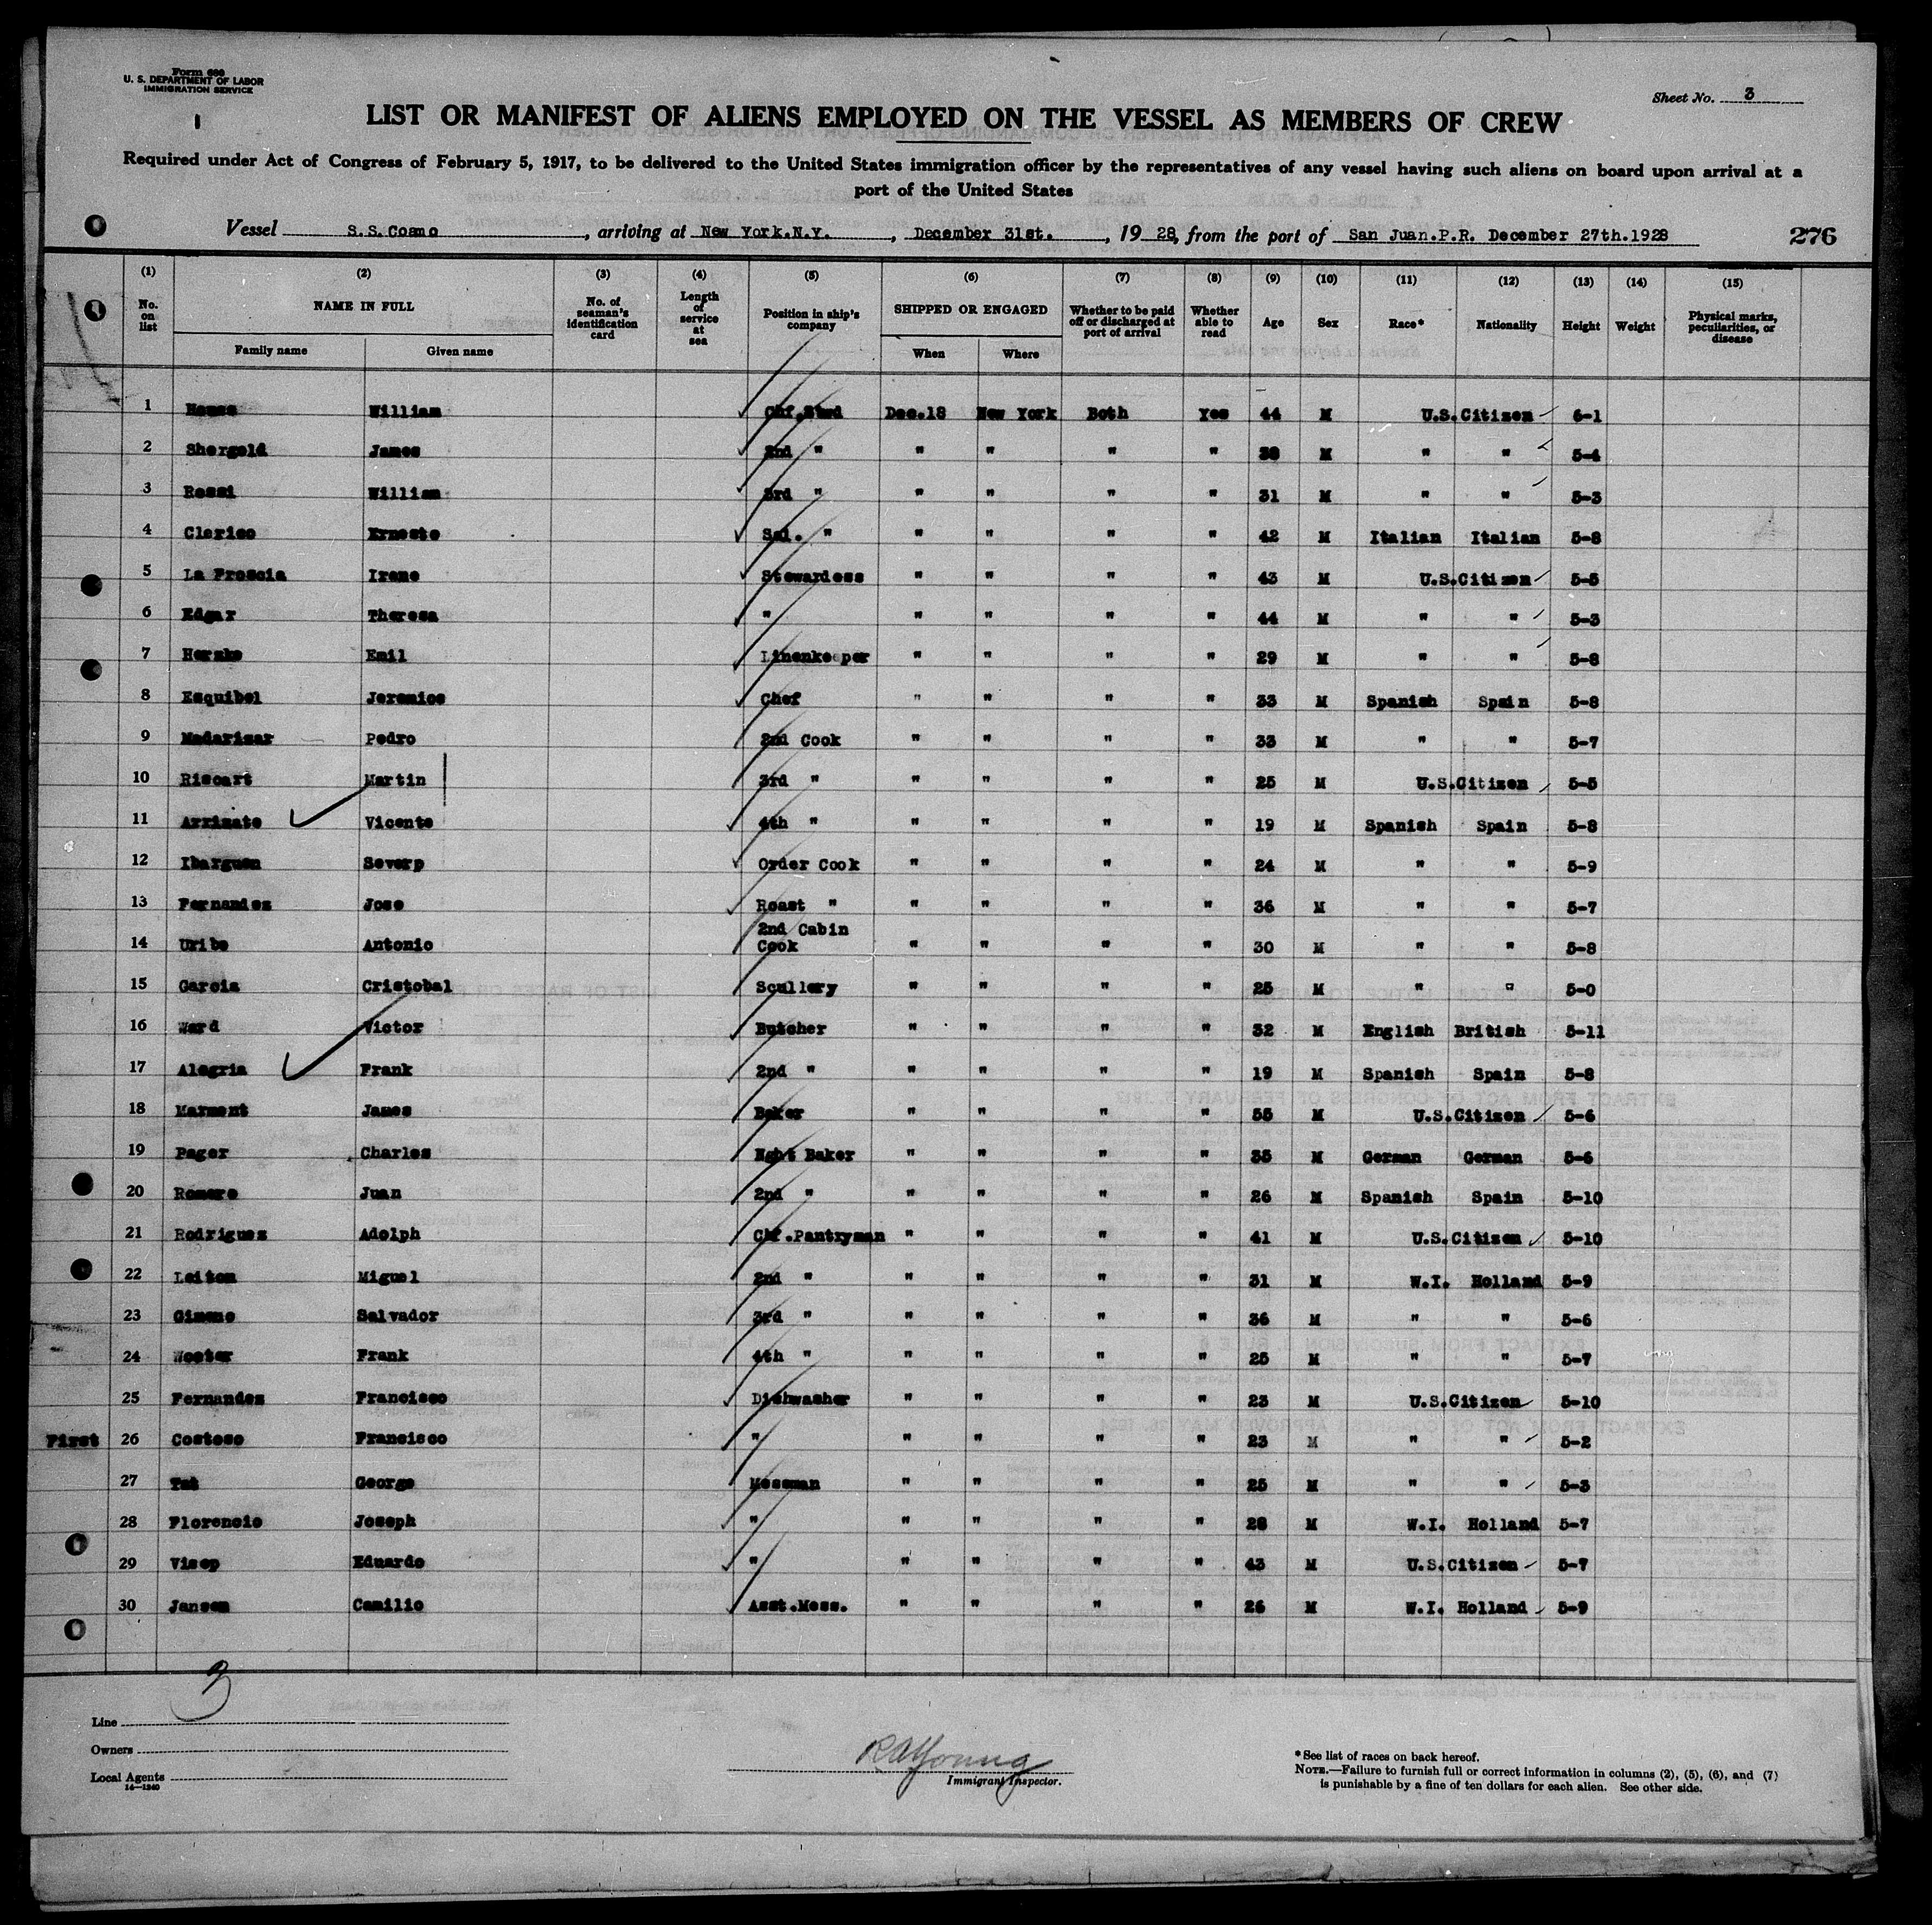 Form 680
U. S. DEPARTMENT OF LABOR
IMMIGRATION SERVICE
Sheet No. 3
LIST OR MANIFEST OF ALIENS EMPLOYED ON THE VESSEL AS MEMBERS OF CREW
Required under Act of Congress of February 5, 1917, to be delivered to the United States immigration officer by the representatives of any vessel having such aliens on board upon arrival at a
port of the United States
Vessel S.S.Coamo, arriving at New York.N.Y., December 31st., 1928, from the port of San Juan.P.R. December 27th.1928 276
(1) (2) (3) (4) (5) (6) (7) (8) (9) (10) (11) (12) (13) (14) (15)
No. on list NAME IN FULL No. of seaman's identification card Length of service at sea Position in ship's company SHIPPED OR ENGAGED Whether to be paid off or discharged at port of arrival Whether able to read Age Sex Race* Nationality Height Weight Physical marks, peculiarities, or disease
Family name Given name When Where
1 William Chf.Stwd Dec.18 New York Both Yes 44 M U.S.Citizen 6-1
2 Shergold James 2nd " " " " " M " " 5-4
3 Rossi William 3rd " " " " " 31 M " " 5-3
4 Clerico Ernesto Sal. " " " " " 42 M Italian Italian 5-8
5 La Froscia Irene Stewardess " " " " 43 M U.S.Citizen 5-5
6 Edgar Theresa " " " " " 44 M " " 5-3
7 Emil Linenkeeper " " " " 29 M " " 5-8
8 Esquibel Jeremice Chef " " " " 33 M Spanish Spain 5-8
9 Madarizar Pedro 2nd Cook " " " " 33 M " " 5-7
10 Riscart Martin 3rd " " " " " 25 M U.S.Citizen 5-5
11 Arrizate Vicente 4th " " " " " 19 M Spanish Spain 5-8
12 Ibarguen Severp Order Cook " " " " 24 M " " 5-9
13 Fernandez Jose Roast " " " " " 36 M " " 5-7
14 Uribe Antonio 2nd Cabin Cook " " " " 30 M " " 5-8
15 Garcia Cristobal Scullery " " " " 25 M " " 5-0
16 Ward Victor Butcher " " " " 32 M English British 5-11
17 Alegria Frank 2nd " " " " " 19 M Spanish Spain 5-8
18 Marment James Baker " " " " 55 M U.S.Citizen 5-6
19 Pager Charles Nght Baker " " " " 35 M German German 5-6
20 Romero Juan 2nd " " " " " 26 M Spanish Spain 5-10
21 Rodriguez Adolph Chf.Pantryman " " " " 41 M U.S.Citizen 5-10
22 Leiton Miguel 2nd " " " " " 31 M W.I. Holland 5-9
23 Gimeno Salvador 3rd " " " " " 36 M " " 5-6
24 Wooter Frank 4th " " " " " 25 M " " 5-7
25 Fernandez Francisco Dishwasher " " " " 23 M U.S.Citizen 5-10
First 26 Costoso Francisco " " " " " 23 M " " 5-2
27 George Messman " " " " 25 M " " 5-3
28 Florencio Joseph " " " " " 28 M W.I. Holland 5-7
29 Visep Eduardo " " " " " 43 M U.S.Citizen 5-7
30 Jansen Camilio Asst.Mess. " " " " 26 M W.I. Holland 5-9
3
Line
Owners
Local Agents
14—1240
RAYoung
Immigrant Inspector.
*See list of races on back hereof.
NOTE.—Failure to furnish full or correct information in columns (2), (5), (6), and (7)
is punishable by a fine of ten dollars for each alien. See other side.